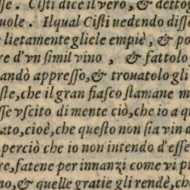 sse. Cisti dice il vero, & dettog
uole. Ilqual Cisti uedendo disse
lietamente gliele empiè, & po
re d'vn simil vino, & fattolo
andò appresso, & trouatolo gli
ste, che il gran fiasco stamane m
sse vscito di mente ciò, che io a qu
ato, cioè, che questo non sia vin da
perciò che io non intendo d'esse
re, fatene per innanzi come vi p
no, & quelle gratie gli rendè, ch